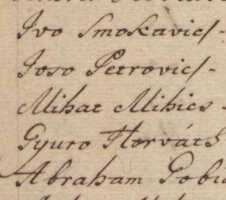 Ivo Smokavics -
Joso Petrovics -
Mihat Mihics -
Gyuro Horváth
Abraham